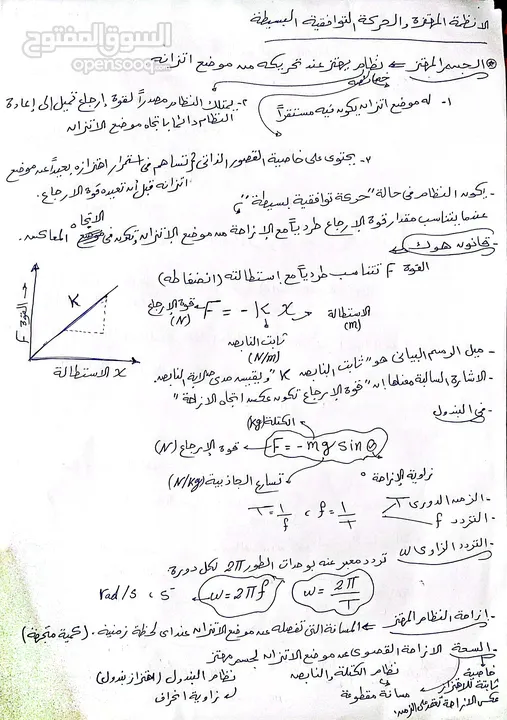 السوق المفتوح
opensooq.com
الانظمة المهتزة والحركة التوافقية البسيطة
الجسم المهتز ← نظام يهتز عند تحريكه من موضع اتزانه
خصائصه
١- له موضع اتزان يكون فيه مستقراً
٢- يمتلك النظام مصدراً لقوة إرجاع تميل إلى إعادة
النظام دائما باتجاه موضع الاتزان
٣- يحتوي على خاصية القصور الذاتي تساهم في استمرار اهتزازه بعيداً عن موضع
اتزانه قبل أن تعيده قوة الارجاع.
- يكون النظام في حالة "حركة توافقية بسيطة"
عندما يتناسب مقدار قوة الإرجاع طردياً مع الازاحة من موضع الإتزان وتكون في الاتجاه المعاكس.
- قانون هوك
القوة F تتناسب طردياً مع استطالته (انضغاطه)
F = -K x
قوة الإرجاع (N)
الاستطالة (m)
ثابت النابض (N/m)
القوة F
K
الاستطالة x
- ميل الرسم البياني هو "ثابت النابض K" ويقيس مدى صلابة النابض.
- الاشارة السالبة معناها ان "قوة الإرجاع تكون عكس اتجاه الازاحة"
- في البندول
الكتلة (kg)
F = -mg sin θ
قوة الإرجاع (N)
زاوية الإزاحة °
تسارع الجاذبية (N/kg)
- الزمن الدوري T
- التردد f
f = 1/T ، T = 1/f
- التردد الزاوي ω تردد معبر عنه بوحدات الطور 2π لكل دورة
ω = 2π/T
ω = 2πf
rad/s ، s⁻
- إزاحة النظام المهتز ← المسافة التي تفصله عن موضع الاتزان عند اي لحظة زمنية. (كمية متجهة)
- السعة الازاحة القصوى عن موضع الاتزان لجسم مهتز
خاصية ثابتة للاهتزاز
عكس الازاحة تتغير مع الزمن.
نظام الكتلة والنابض
مسافة مقطوعة
نظام البندول (اهتزاز بندول)
زاوية انحراف